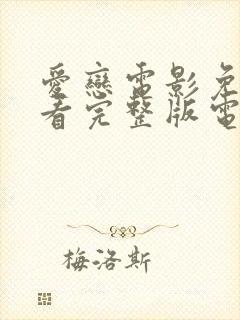 愛戀電影免
看完整版電
梅洛斯